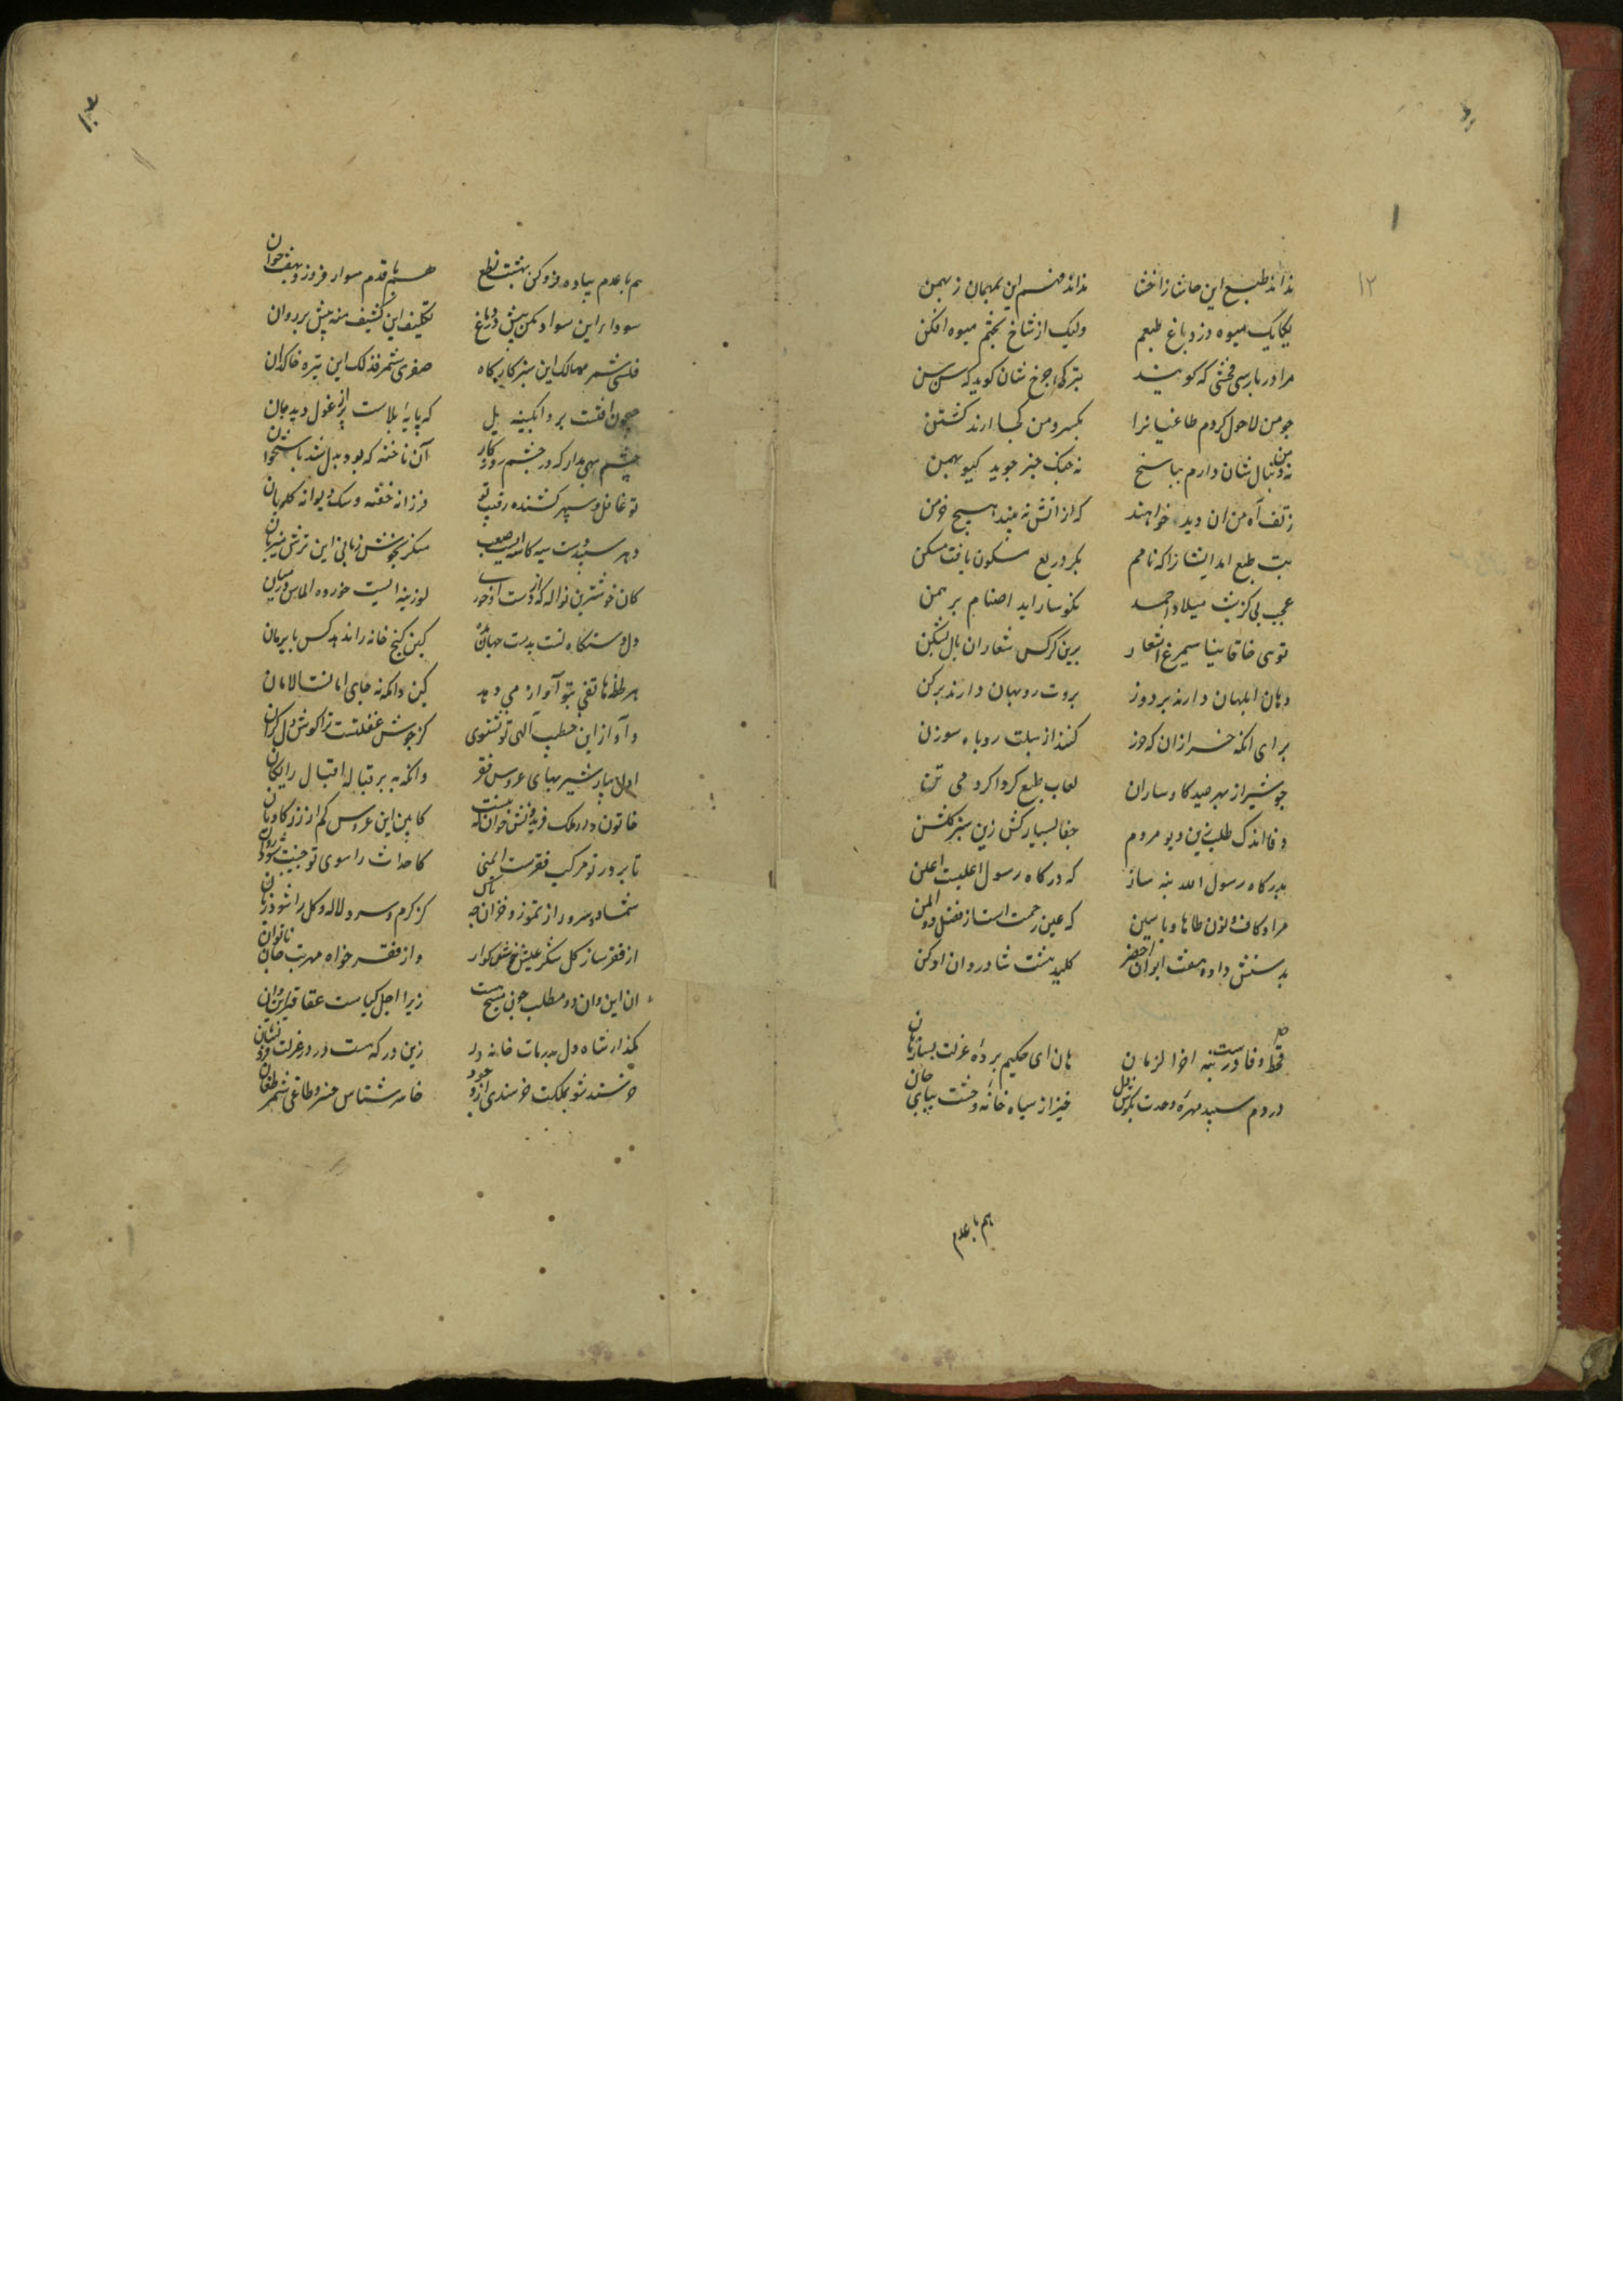 نداند طبع این حانشا ز اخشا نداند فهم این بهمان ز بهمن
یکایک میوه دزد باغ طبعم ولیک از شاخ بختم میوه افکن
مرا در پارسی فحشی که کویند بترکی چرخ شان کوید که سن سن
چو من لاحول کردم طاغیانرا بکبر و من کجا ارند کشتن
نه من دنبال شان دارم بپاسخ نه جنک حیز جوید کیو بهمن
ز تف آه من ان دید خواهند که از اتش نه بیند هیچ خرمن
بت طبع امد ایشانرا که نامم
عجب نی کز شب میلاد احمد نکوسار اید اصنام برهمن
توی خاقانیا سیمرغ اشعار برین کرکس شعاران بال بشکن
دهان ابلهان دارند بردوز بروت روبهان دارند برکن
برای انکه خرازان که خرز کنند از سبلت روباه سوزن
چو شیر از بهر صید کاوساران لعاب طبع کرداکرد می تن
وفا اندک طلب زین دیو مردم جفا بسیار کش زین سبز کلشن
بدرکاه رسول الله پنه ساز که درکاه رسول اعلیست اعلن
مراد کاف و نون طاها و یاسین که عین رحمتست از فضل ذوالمن
بدستش داده هفت ایوان اخضر کلید هشت شادروان ادکن
قحط وفاست در بنه اخر الزمان هان ای حکیم پرده عزلت بساز هان
دردم سپید مهره وحدت بکوش دل خیز از سیاه خانه وحشت بپای جان
هم با عدم
هم با عدم پیاده فرو کن بهشت نطع هم با قدم سوار فرو ز و بهفت خوان
سودا براین سواد مکن پیش در دماغ تکلیف این کشیف منه بیش بر روان
فلسی شمر ممالک این سبز کارکاه صفری شمر فذلک این تیره خاکدان
آن ناخنه که بود بدل شد باستخوان
تو غافل و سپهر کشنده رقیب تو فرزانه خفته و سک دیوانه کله بان
دهر سپید دست سیه کاسه ایست صعب منکر بخوش زبانی این ترش میزبان
کان خوشترین نواله که از دست او خوری لوزینه ایست خورده الماس در میان
دل دستکاه تست بدست جهان مده کین کنج خانه را ندهد کس بایرمان
هر لحظه هاتفی بتو آواز می دهد کین دامکه نه جای امانست الامان
و آواز این خطیب آلهی تو نشنوی کز جوش غفلتست ترا کوش دل کران
اول بیار شیر بهای عروس فقر وانکه ببر قباله اقبال رایکان
خاتون دار ملک فریدونش خوان که نیست کابین این عروس کم از زر کاویان
تا بر در تو مرکب فقرست ایمنی کاحداث را سوی تو جنیبت شود روان
شمشاد و سرو را ز تموز و خزان چه باک کز کرم و سرد لاله و کل را شود زیان
از فقر ساز کل شکر عیش خوشکوار و از فقر خواه مهرتب جان ناتوان
ان این و ان دو مطلب چون مسیح هست زیرا اجل کیاست عقاقیر این و ان
بکذار شاه دل بدر مات خانه در زین در که هست درد ز عزلت فرو نشان
خرسند شو بملکت خرسندی از وجود خاسر شناس خسرو و طاغی شمر طغان